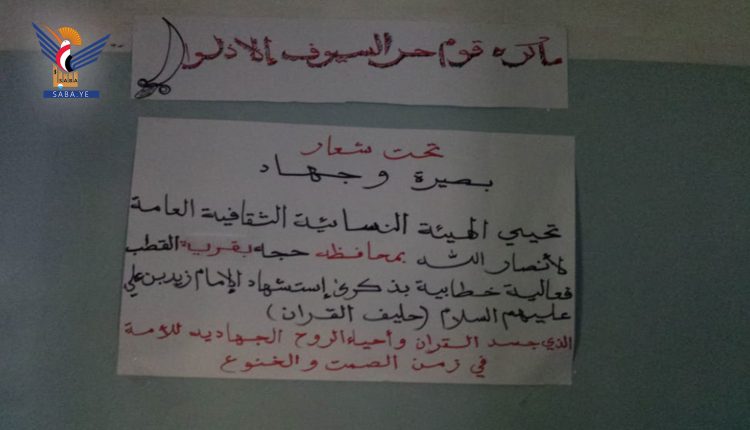 SABA
SABA.YE
ماكره قوم حر السيوف إلا ذلوا
تحت شعار
بصيرة وجهاد
تحيي الهيئة النسائية الثقافية العامة
لأنصار الله بمحافظه حجه بقرية القطب
فعالية خطابية بذكرى إستشهاد الإمام زيد بن علي
عليهم السلام (حليف القران)
الذي جسد القران وأحياء الروح الجهاديه للأمة
في زمن الصمت والخنوع